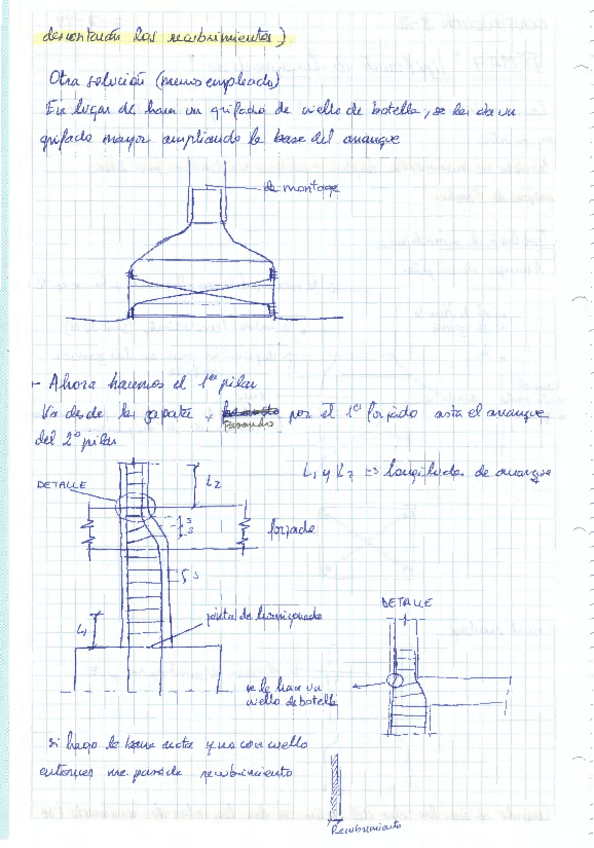 descontando los recubrimientos)
Otra solución (menos empleado)
En lugar de hacer un grifado de cuello de botella, se les da un
grifado mayor ampliando la base del arranque
de montage
- Ahora hacemos el 1er pilar
Va desde la zapata, pasando por el 1er forjado asta el arranque
del 2º pilar
L1 y L2 => longitudes de arranque
DETALLE
L2
S
S
forjado
S
L1
junta de hormigonado
DETALLE
se le hace un
cuello de botella
si hago la barra recta y no con cuello
entonces me pasa de recubrimiento
Recubrimiento